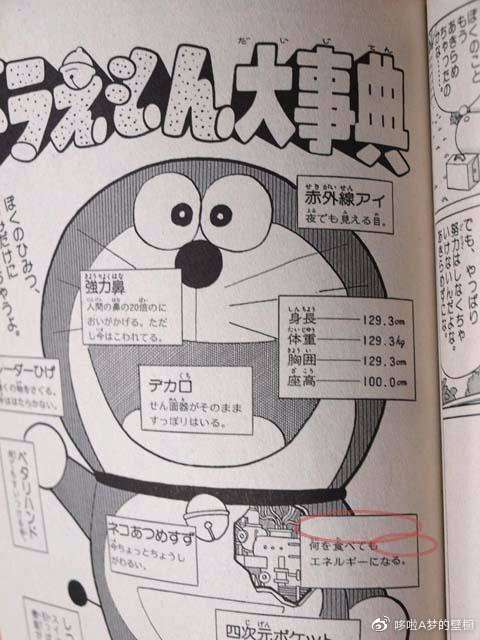 ドラえもん大事典
だいじてん
ぼくのこと
もう
あきらめ
ちゃったの
かな。
でも、やっぱり
努力はしなくちゃ
いけないんだよな。
ぼくのひみつ、
赤外線アイ
せきがいせん
夜でも見える目。
強力鼻
きょうりょくはな
人間の鼻の20倍のに
おいがかげる。ただ
し今はこわれてる。
身長 129.3cm
体重 129.3kg
胸囲 129.3cm
座高 100.0cm
レーダーひげ
デカ口
せん面器がそのまま
すっぽりはいる。
ペタリハンド
ネコあつめすず
今ちょっとちょうし
がわるい。
何を食べても
エネルギーになる。
四次元ポケット
哆啦A梦的壁橱